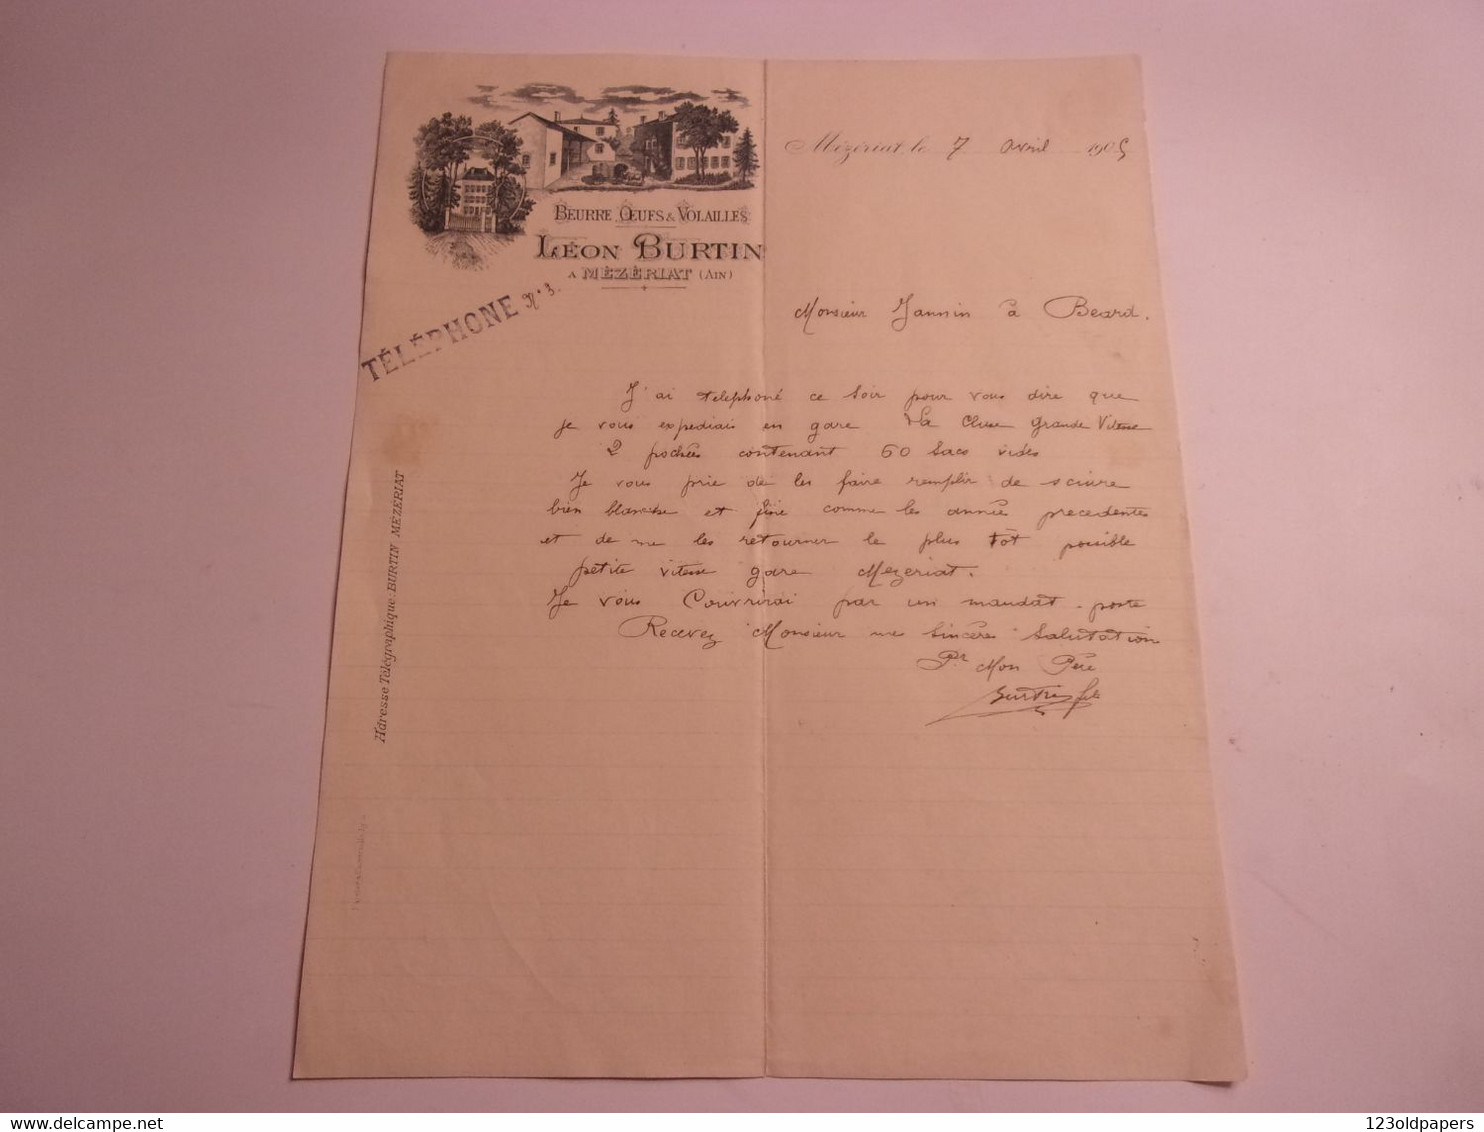 BEURRE, ŒUFS & VOLAILLES
LÉON BURTIN
A MÉZÉRIAT (AIN)
TÉLÉPHONE N° 3.
Adresse Télégraphique: BURTIN MÉZÉRIAT
Mézériat, le 7 avril 1905
Monsieur Jannin à Beard.
J'ai telephoné ce soir pour vous dire que
je vous expediais en gare La Cluse grande Vitesse
2 pochées contenant 60 sacs vides
Je vous prie de les faire remplir de sciure
bien blanche et fine comme les année precedentes
et de me les retourner le plus tôt possible
petite vitesse gare Mezeriat.
Je vous Couvrirai par un mandat-poste
Recevez Monsieur mes sincères salutation
Pr Mon Père
Burtin fils
123oldpapers